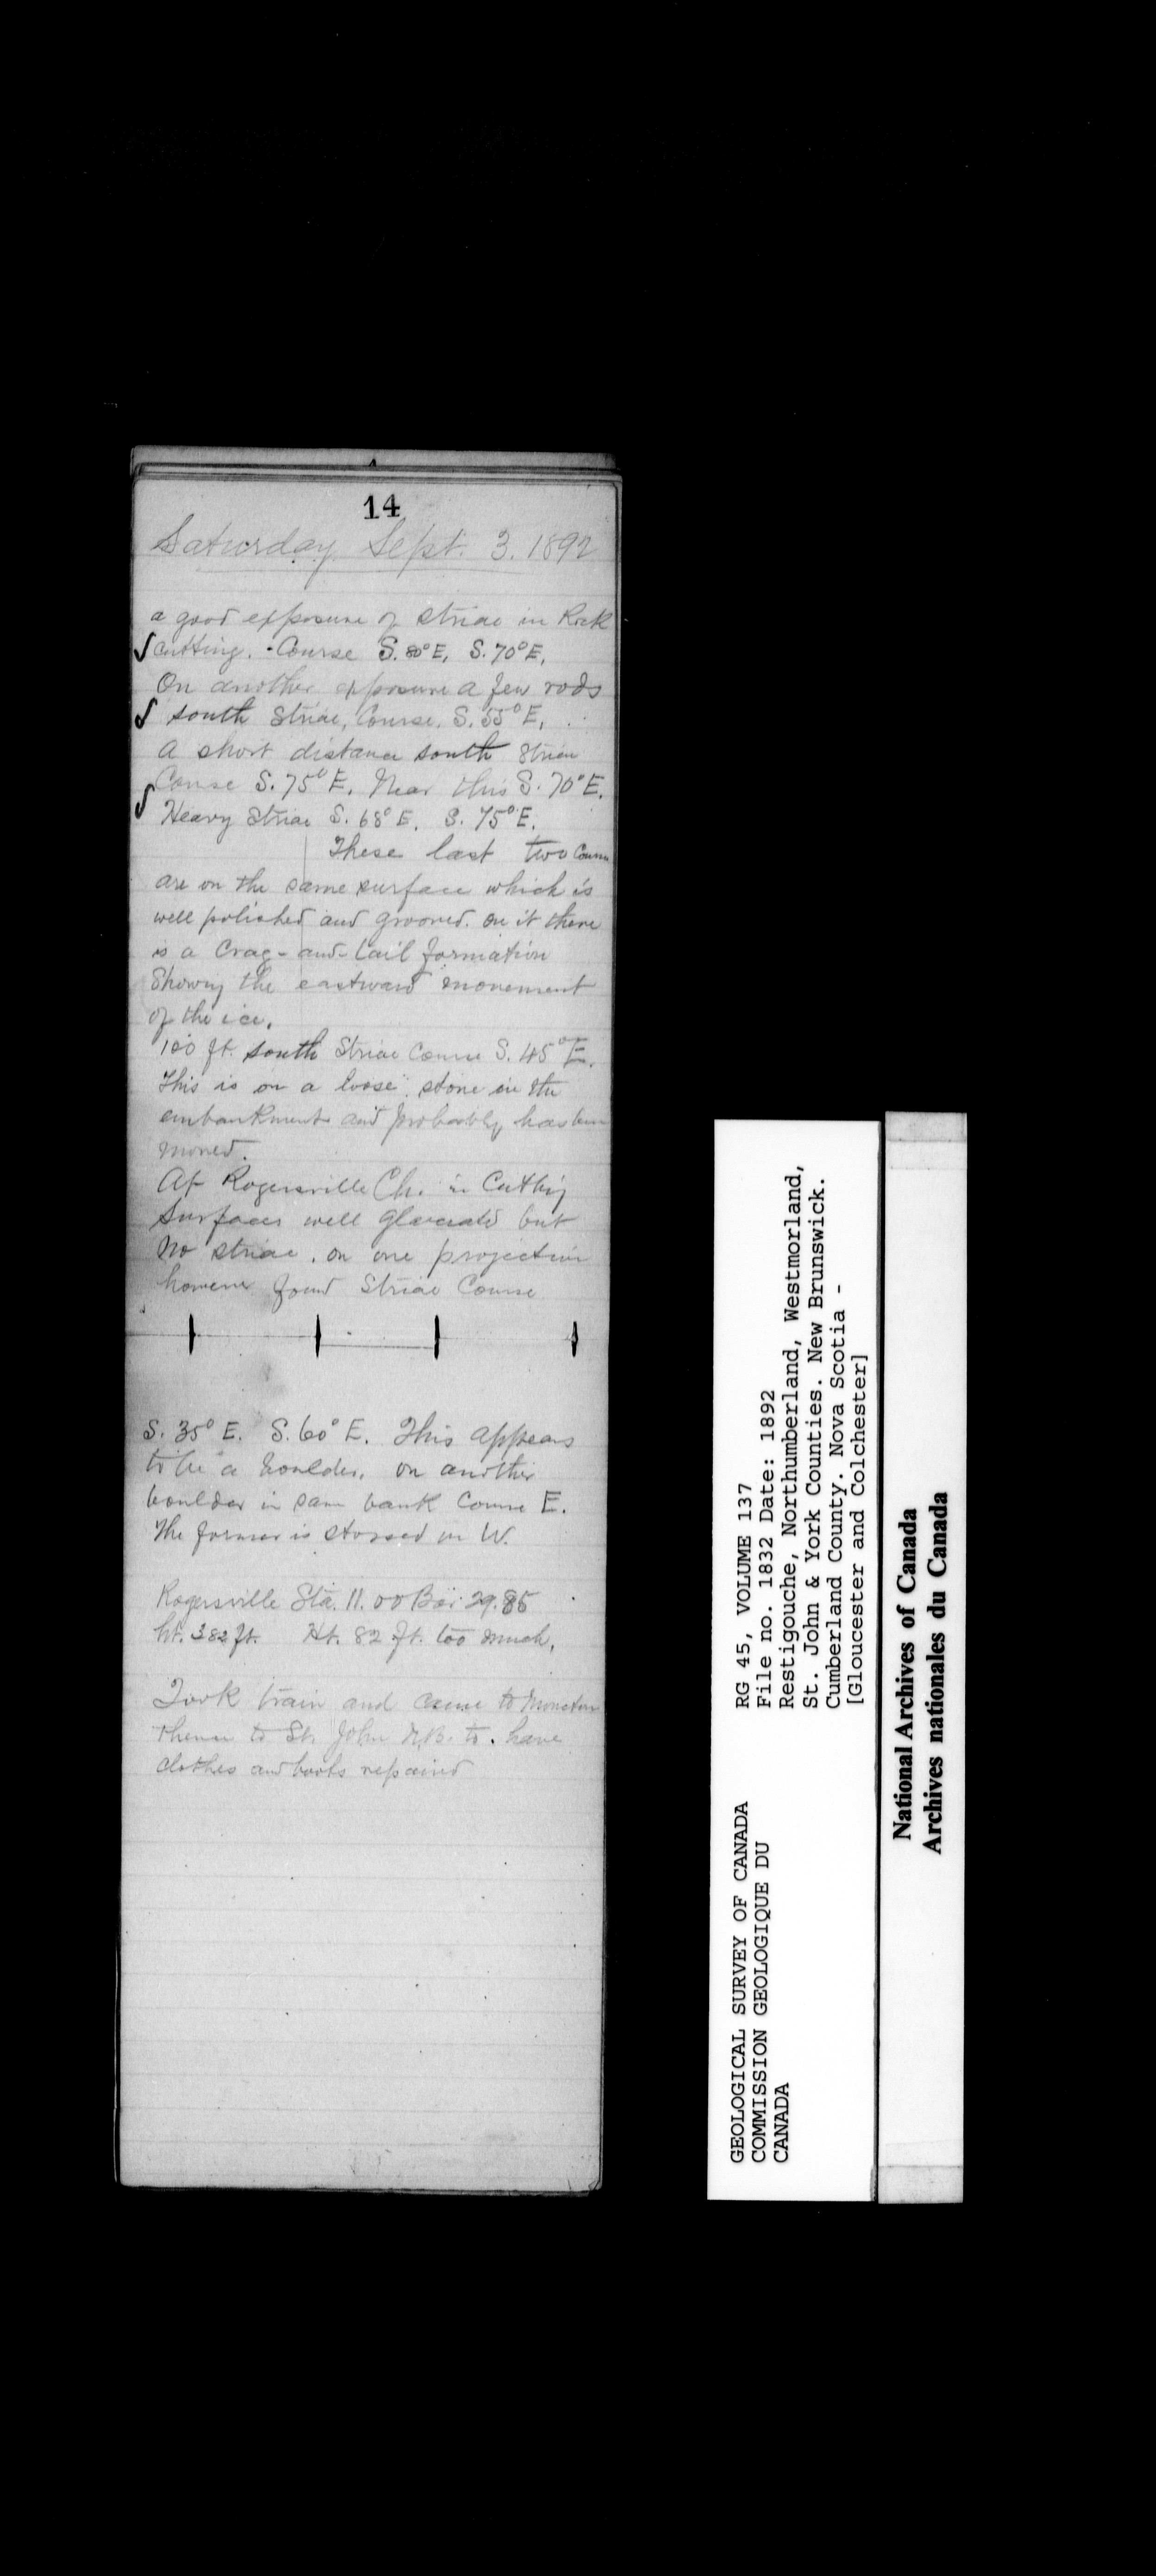 14
Saturday Sept. 3. 1892
a good exposure of striae in Rock
cutting. Course S. 80° E, S. 70° E,
On another exposure a few rods
south Striae, Course, S. 55° E,
A short distance south Striae
Course S. 75° E. Near this S. 70° E.
Heavy Striae S. 68° E. S. 75° E.
These last two Courses
are on the same surface which is
well polished and grooved. on it there
is a Crag-and-tail formation
Showing the eastward movement
of the ice.
100 ft. south Striae Course S. 45° E.
This is on a loose stone in the
embankment and probably has been
moved.
At Rogersville Ch. in Cutting
Surfaces well glaciated but
No striae. on one projection
however found Striae Course
S. 35° E. S. 60° E. This appears
to be a boulder. on another
boulder in same bank Course E.
The former is stossed on W.
Rogersville Sta. 11.00 Bar. 29.85
ht. 382 ft. Ht. 82 ft. too much.
Took train and came to Moncton
thence to St. John N.B. to have
clothes and boots repaired
GEOLOGICAL SURVEY OF CANADA
COMMISSION GEOLOGIQUE DU
CANADA
RG 45, VOLUME 137
File no. 1832 Date: 1892
Restigouche, Northumberland, Westmorland,
St. John & York Counties. New Brunswick.
Cumberland County. Nova Scotia -
[Gloucester and Colchester]
National Archives of Canada
Archives nationales du Canada